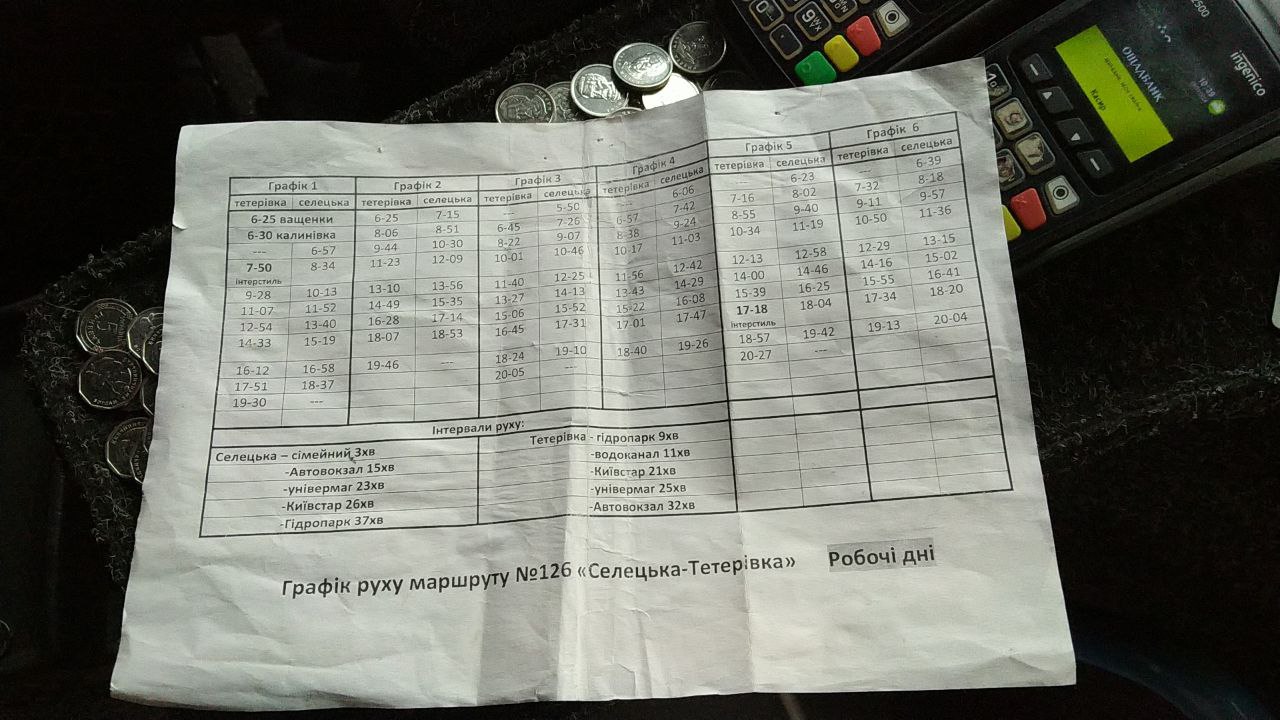 Графік 1 Графік 2 Графік 3 Графік 4 Графік 5 Графік 6
тетерівка селецька тетерівка селецька тетерівка селецька тетерівка селецька тетерівка селецька тетерівка селецька
6-25 ващенки 6-25 7-15 --- 5-50 --- 6-06 --- 6-23 --- 6-39
6-30 калинівка 8-06 8-51 6-45 7-26 6-57 7-42 7-16 8-02 7-32 8-18
--- 6-57 9-44 10-30 8-22 9-07 8-38 9-24 8-55 9-40 9-11 9-57
7-50 8-34 11-23 12-09 10-01 10-46 10-17 11-03 10-34 11-19 10-50 11-36
Інтерстиль
9-28 10-13 13-10 13-56 11-40 12-25 11-56 12-42 12-13 12-58 12-29 13-15
11-07 11-52 14-49 15-35 13-27 14-13 13-43 14-29 14-00 14-46 14-16 15-02
12-54 13-40 16-28 17-14 15-06 15-52 15-22 16-08 15-39 16-25 15-55 16-41
14-33 15-19 18-07 18-53 16-45 17-31 17-01 17-47 17-18 18-04 17-34 18-20
Інтерстиль
16-12 16-58 19-46 --- 18-24 19-10 18-40 19-26 18-57 19-42 19-13 20-04
17-51 18-37 20-05 --- 20-27 ---
19-30 ---
Інтервали руху:
Селецька – сімейний 3хв Тетерівка - гідропарк 9хв
-Автовокзал 15хв -водоканал 11хв
-універмаг 23хв -Київстар 21хв
-Київстар 26хв -універмаг 25хв
-Гідропарк 37хв -Автовокзал 32хв
Графік руху маршруту №126 «Селецька-Тетерівка» Робочі дні
ingenico
ОЩАДБАНК
Касир